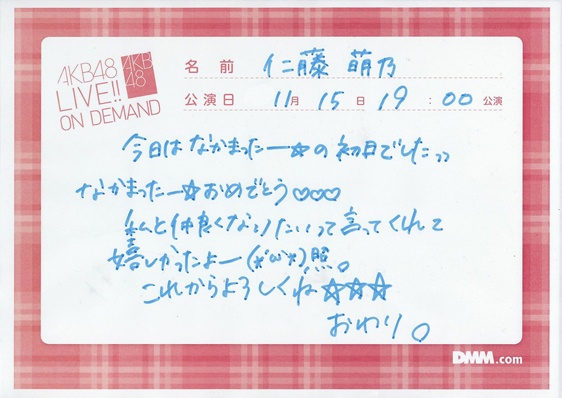 AKB48
LIVE!!
ON DEMAND
AKB
48
名前 仁藤萌乃
公演日 11月15日19:00公演
今日はなかまったー☆の初日でしたっっ
なかまったー☆おめでとう♡♡♡
私と仲良くなりたいって言ってくれて
嬉しかったよー(*'ω'*)照。
これからよろしくね☆☆☆
おわり。
DMM.com